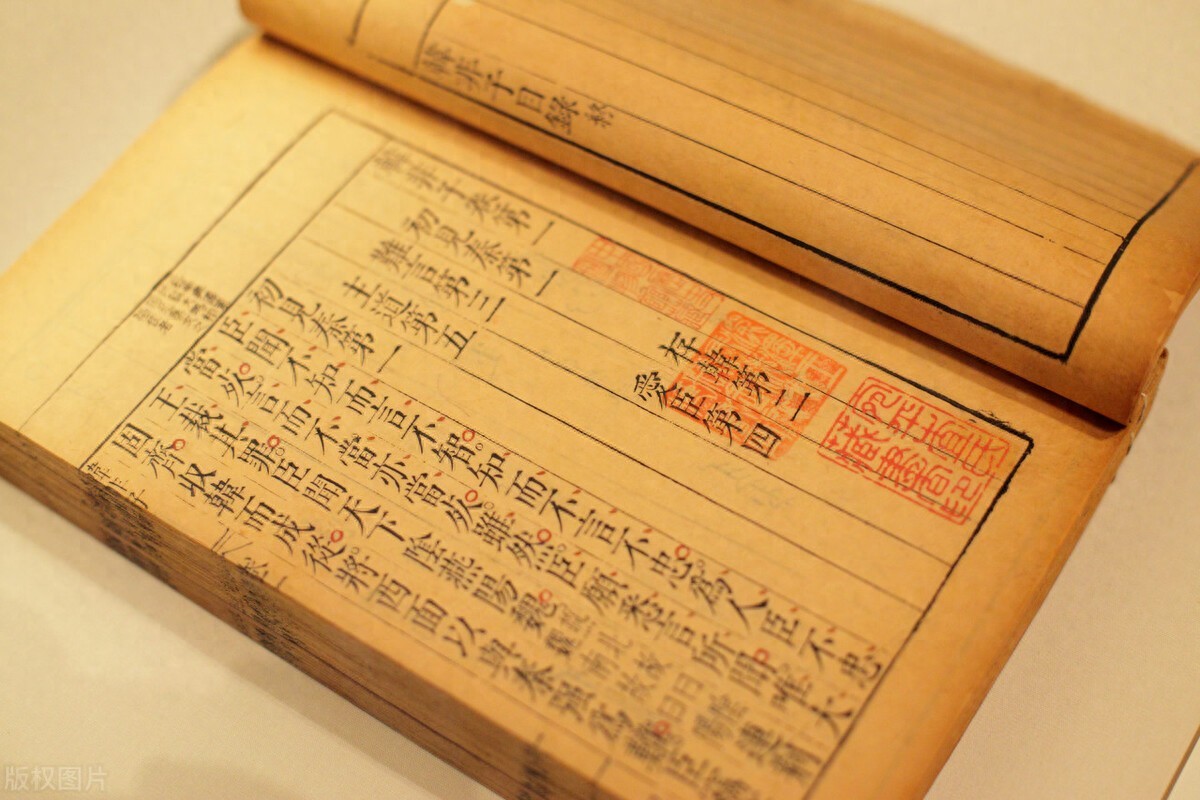 韓非子目錄終
韓非子卷第一
初見秦第一 存韓第二
難言第三 愛臣第四
主道第五
初見秦第一
臣聞不知而言不智知而不言不忠為人臣不忠
當死言而不當亦當死雖然臣願悉言所聞唯大
王裁其罪臣聞天下陰燕陽魏 連荆
固齊收韓而成從將西面以與秦強為難臣竊
韓非子
版权图片